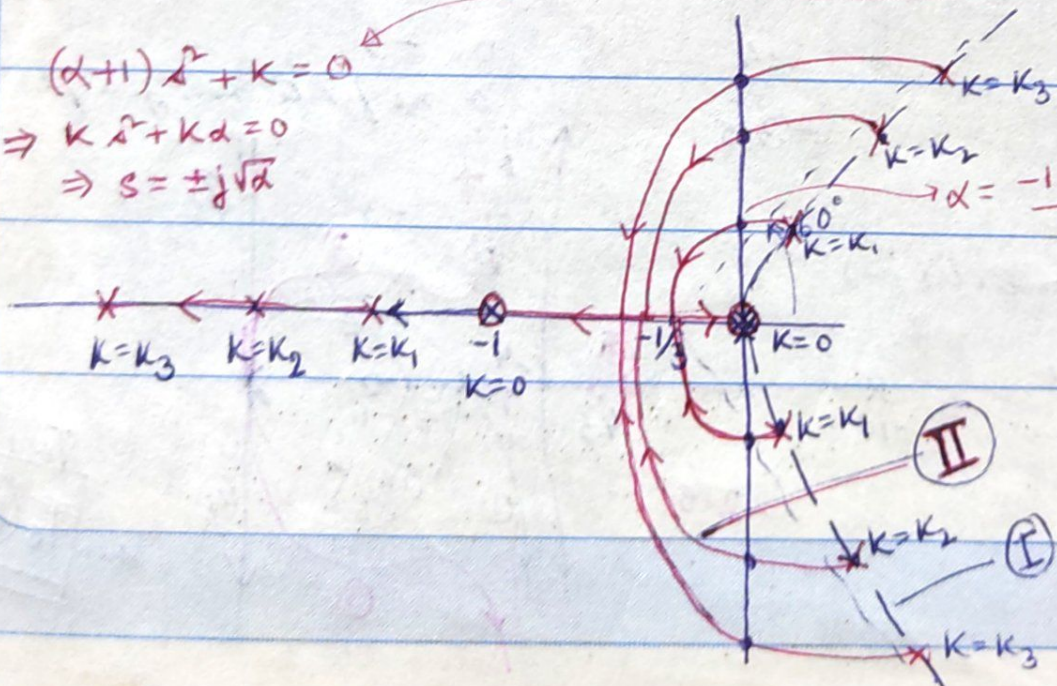 (α+1) s² + K = 0
⇒ K s² + Kα = 0
⇒ s = ±j√α
K=K₃
K=K₂
→ α = -1
60°
K=K₁
K=K₃ K=K₂ K=K₁ -1 -1/3 K=0
K=0
K=K₁
II
K=K₂
I
K=K₃